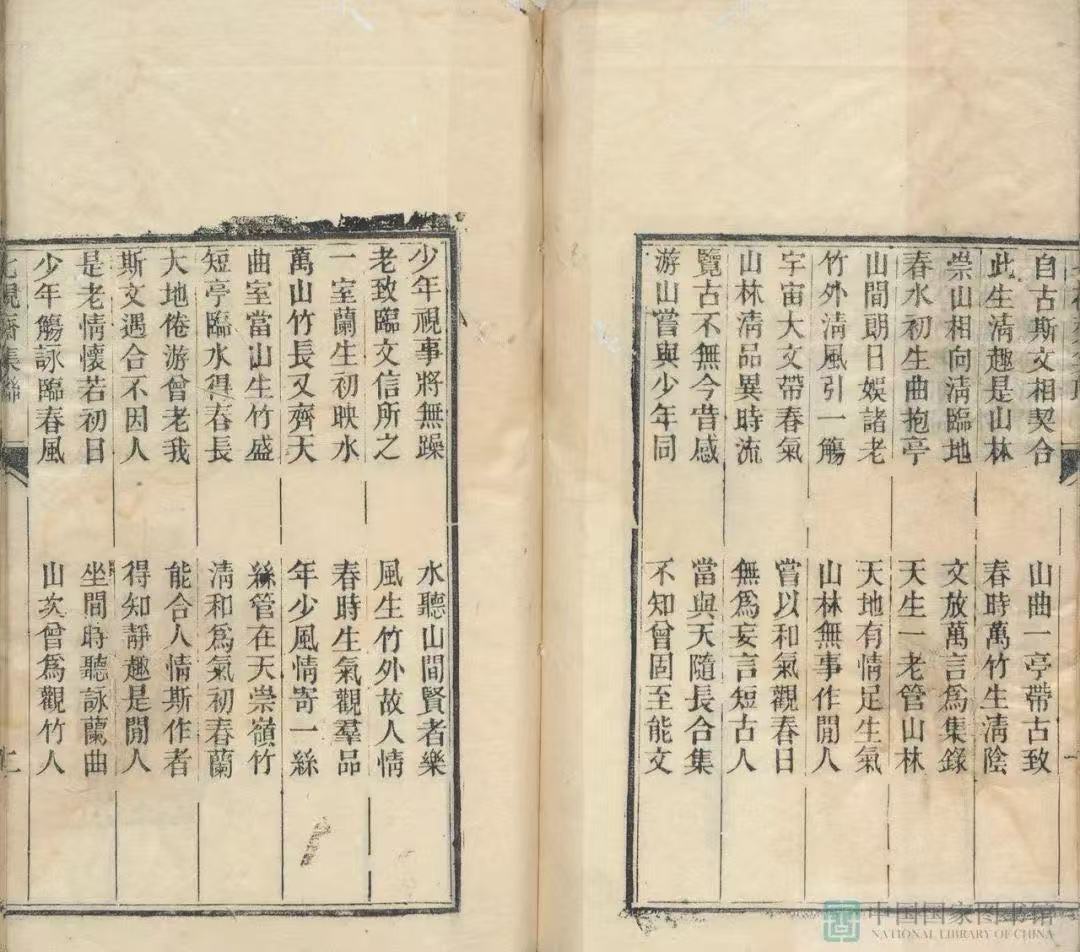 自古斯文相契合
山曲一亭帶古致
此生淸趣是山林
春時萬竹生淸陰
崇山相向淸臨地
文放萬言爲集錄
春水初生曲抱亭
天生一老管山林
山間朗日娛諸老
天地有情足生氣
竹外淸風引一觴
山林無事作閒人
宇宙大文帶春氣
嘗以和氣觀春日
山林淸品異時流
無爲妄言短古人
覽古不無今昔感
當與天隨長合集
游山嘗與少年同
不知曾固至能文
少年視事將無躁
水聽山間賢者樂
老致臨文信所之
風生竹外故人情
一室蘭生初映水
春時生氣觀羣品
萬山竹長又齊天
年少風情寄一絲
曲室當山生竹盛
絲管在天崇嶺竹
短亭臨水得春長
淸和爲氣初春蘭
大地倦游曾老我
能合人情斯作者
斯文遇合不因人
得知靜趣是閒人
是老情懷若初日
坐間時聽詠蘭曲
少年觴詠臨春風
山次曾爲觀竹人
中国国家图书馆
NATIONAL LIBRARY OF CHINA